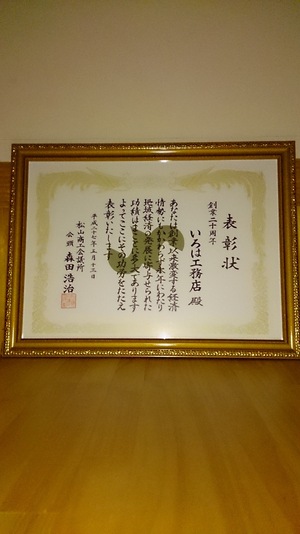 表彰状
創業二十周年
いろは工務店 殿
あなたは創業以来激変する経済
情勢にもかかわらず永年にわたり
地域経済の発展に寄与せられた
功績はまことに多大であります
よってここにその功労をたたえ
表彰いたします
平成二十七年三月十三日
松山商工会議所
会頭 森田浩治